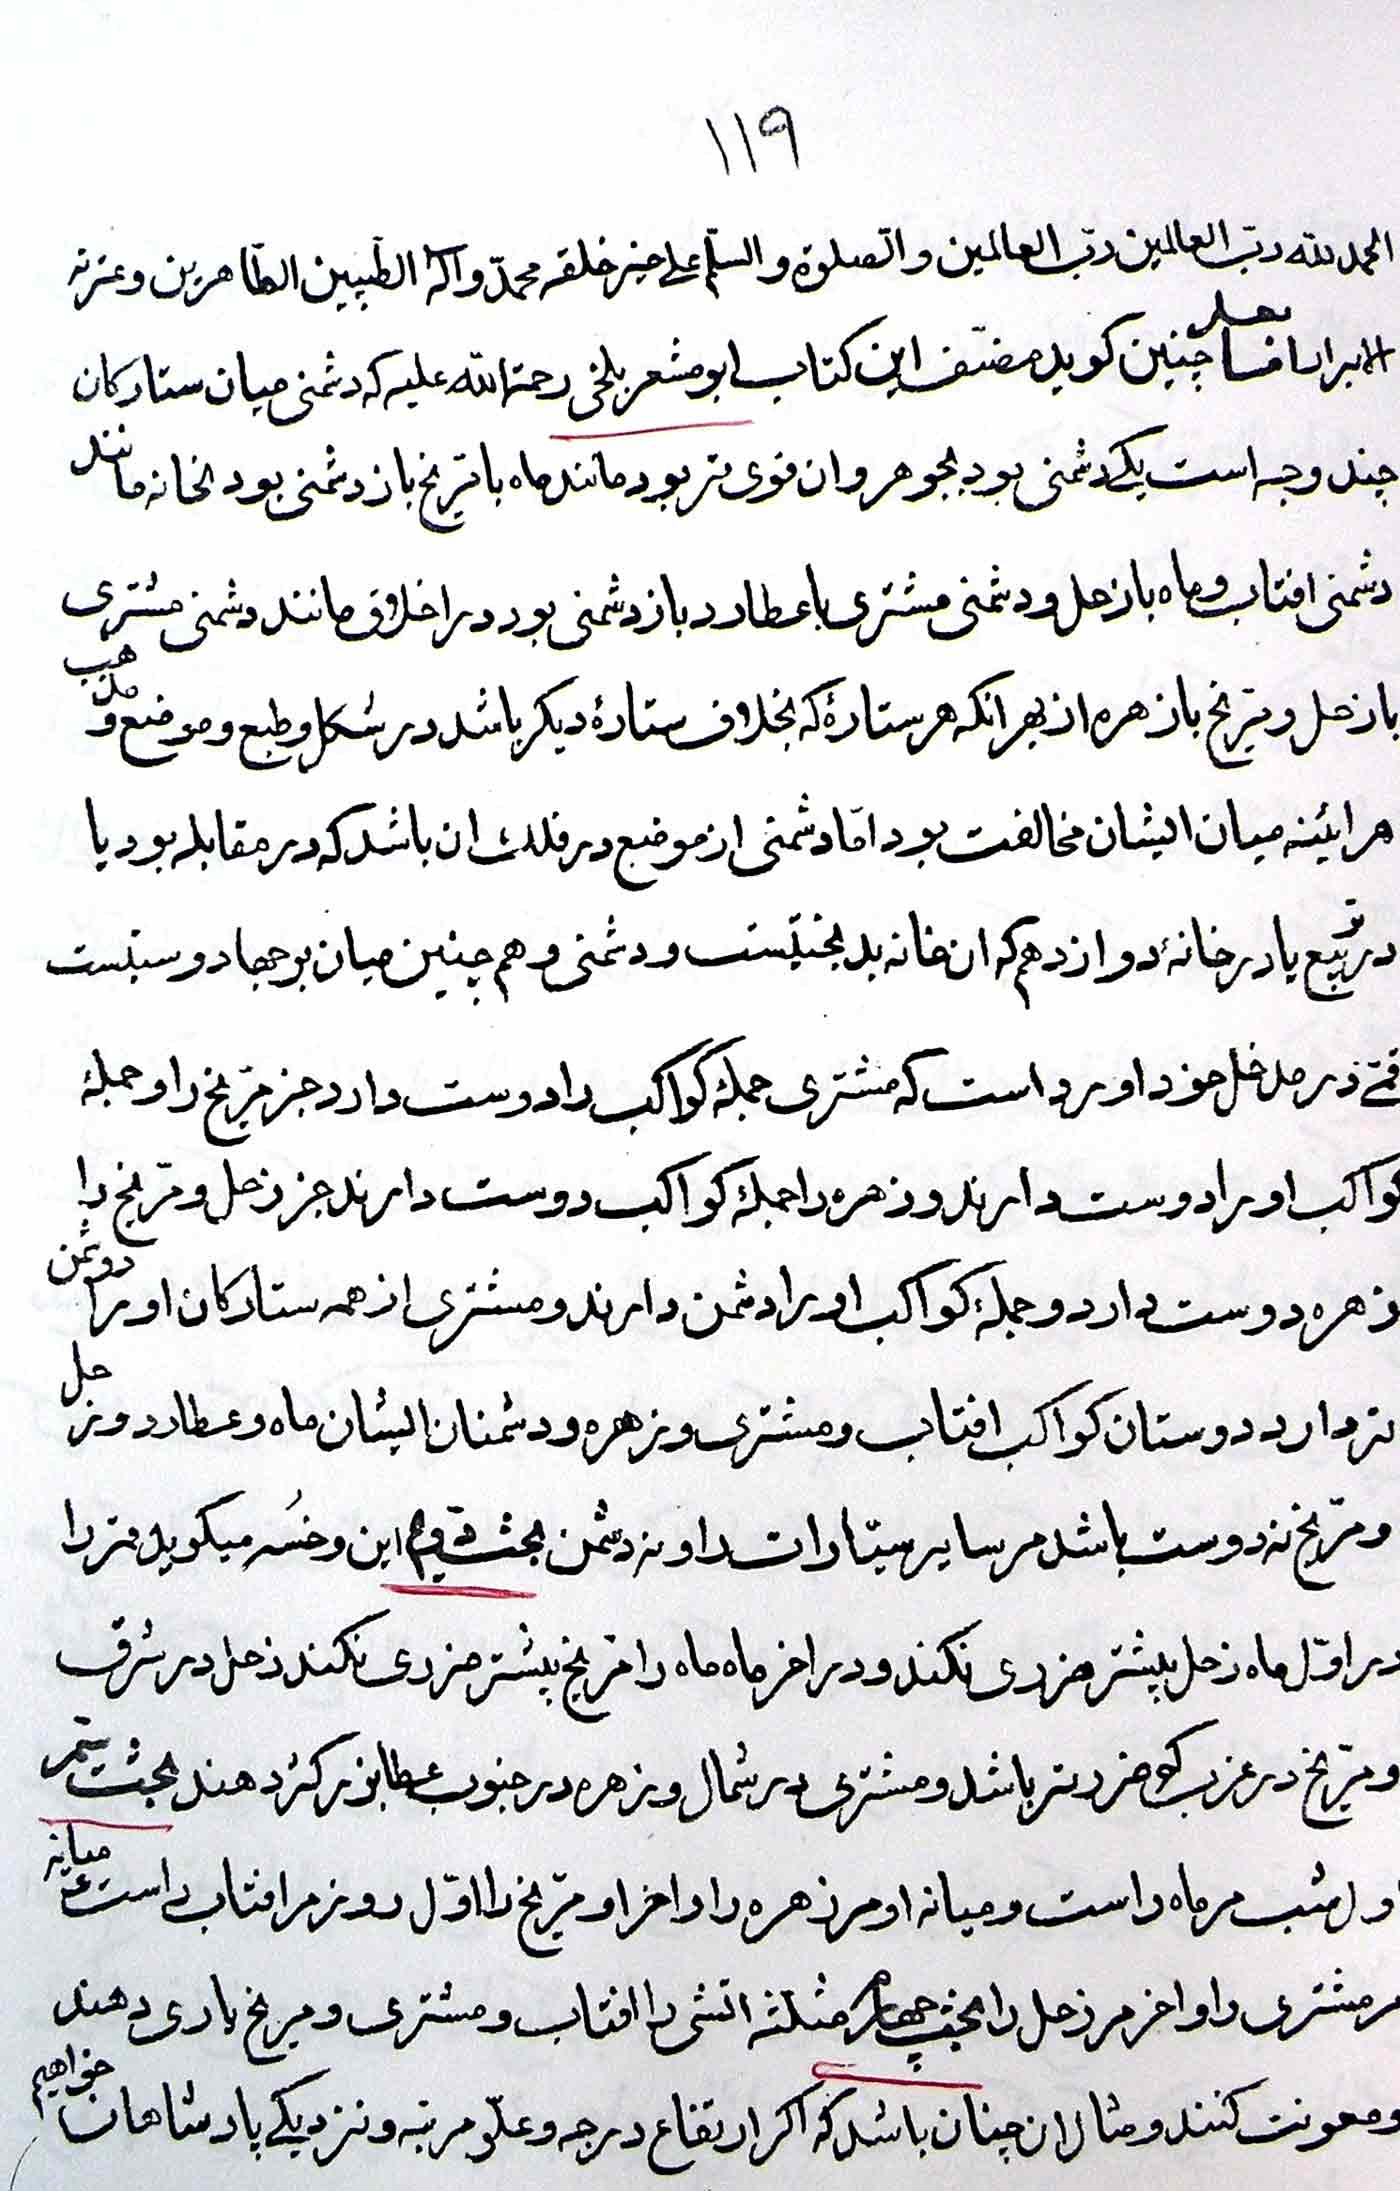 ۱۱۹
الحمد لله رب العالمین رب العالمین والصلوة والسلم علی خیر خلقه محمد واله الطیبین الطاهرین وعترته
الابرار اما بعد چنین کوید مصنف این کتاب ابو مشعر بلخی رحمة الله علیه که دشمنی میان ستارکان
چند وجه است یکی دشمنی بود بجوهر وان قوی تر بود مانند ماه با مریخ باز دشمنی بود بخانه مانند
دشمنی افتاب و ماه با زحل و دشمنی مشتری با عطارد باز دشمنی بود در اخلاق مانند دشمنی مشتری
با زحل و مریخ با زهره از بهر انکه هر ستارهٔ که بخلاف ستارهٔ دیکر باشد در شکل و طبع و موضع و مذهب
هرایینه میان ایشان مخالفت بود اما دشمنی از موضع در فلک ان باشد که در مقابله بود یا
در تربیع یا در خانهٔ دوازدهم که ان خانه بدبختیست و دشمنی و هم چنین میان برجها دوستیست
در مدخل خود اورد است که مشتری جملهٔ کواکب را دوست دارد جز مریخ را و جملهٔ
کواکب او را دوست دارند و زهره را جملهٔ کواکب دوست دارند جز زحل و مریخ را
زهره دوست دارد و جملهٔ کواکب او را دشمن دارند و مشتری از همه ستارکان او را دوشمن
تر دارد دوستان کواکب افتاب و مشتری و زهره و دشمنان ایشان ماه و عطارد و زحل
و مریخ نه دوست باشد مر سایر سیارات را و نه دشمن بحث دویم این وخسه میکوید قمر را
در اول ماه زحل بیشتر ضرری نکند و در اخر ماه ماه را مریخ بیشتر ضرری نکند زحل در شرق
و مریخ در غرب کم ضررتر باشد و مشتری در شمال و زهره در جنوب عطا بزرکتر دهند بحث سیم
اول شب مر ماه راست و میانه او مر زهره را و اخر او مریخ را اول روز مر افتاب راست میانه
مر مشتری را و اخر مر زحل را بحث چهارم مثلثه اتشی را افتاب و مشتری و مریخ یاری دهند
و معونت کنند و مثال ان چنان باشد که اکر ارتفاع درجه و علو مرتبه و نزدیکی پادشاهان خواهیم